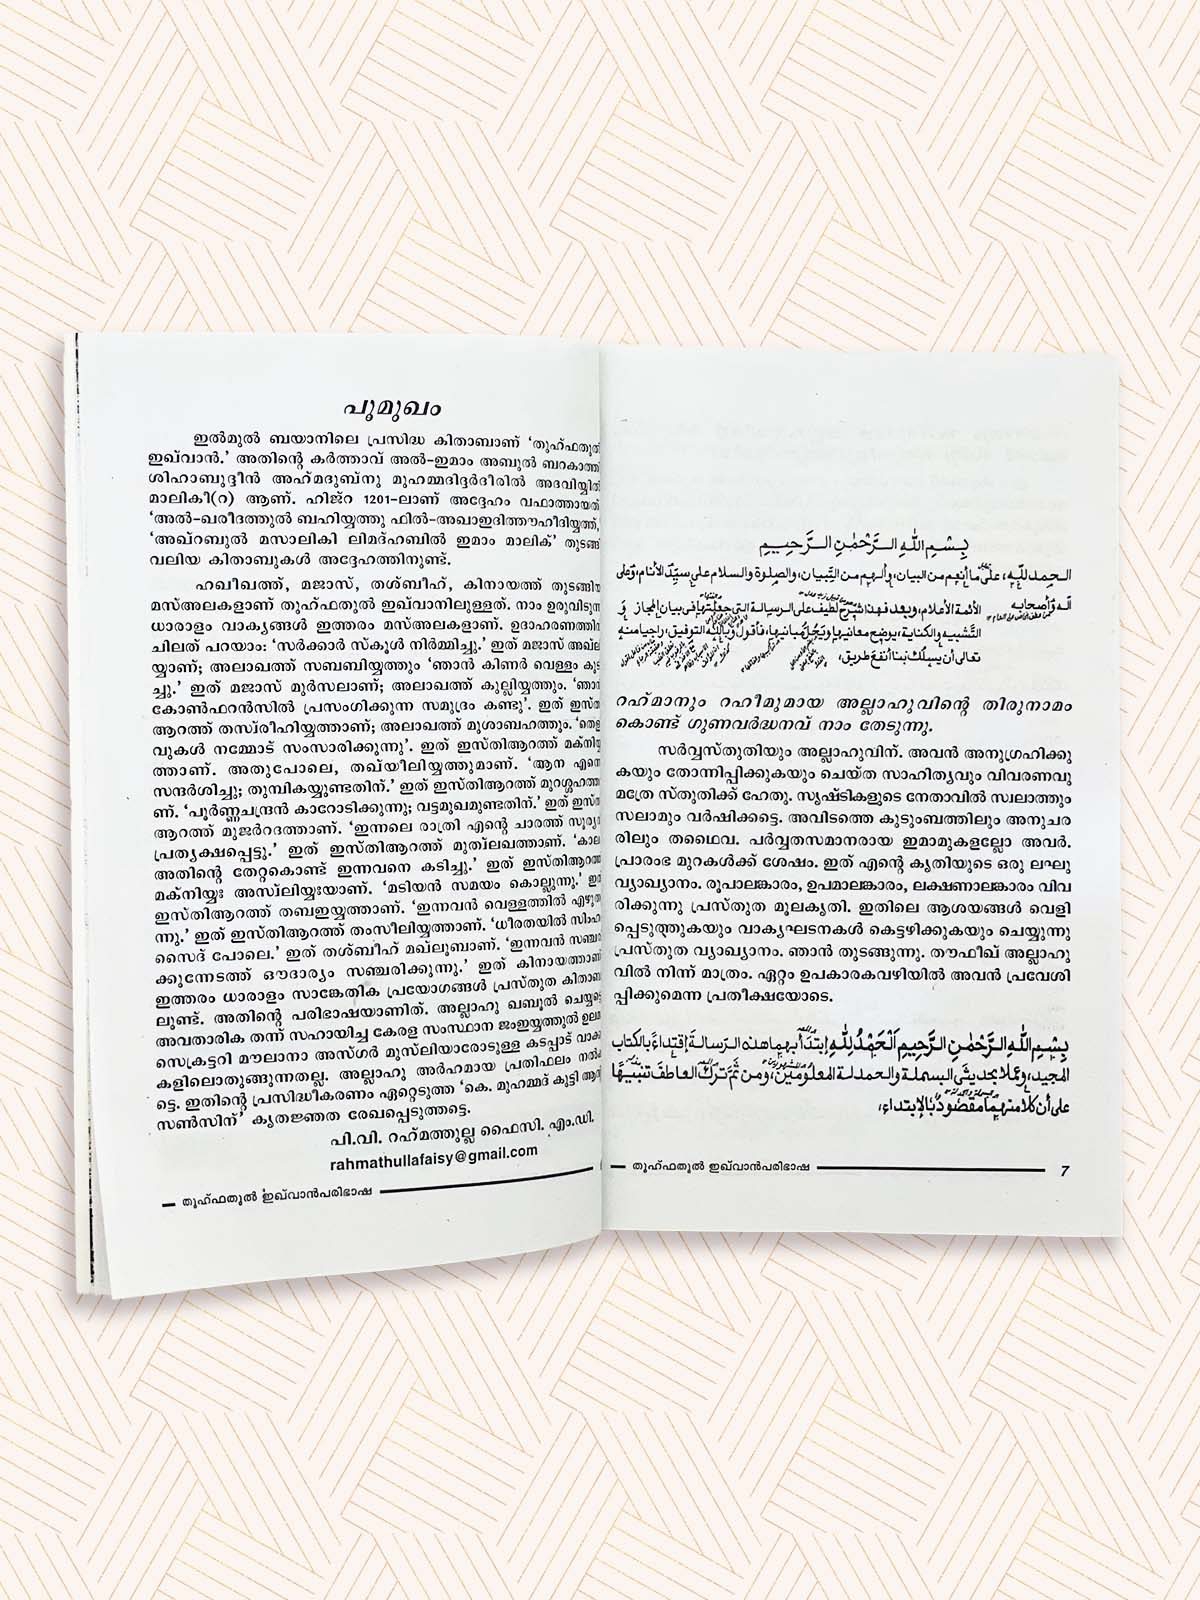 പൂമുഖം
ഇൽമുൽ ബയാനിലെ പ്രസിദ്ധ കിതാബാണ് 'തുഹ്ഫതുൽ
ഇഖ്‌വാൻ.' അതിന്റെ കർത്താവ് അൽ-ഇമാം അബുൽ ബറകാത്ത്
ശിഹാബുദ്ദീൻ അഹ്മദുബ്നു മുഹമ്മദിദ്ദർദീരിൽ അദവിയ്യിൽ
മാലികീ(റ) ആണ്. ഹിജ്റ 1201-ലാണ് അദ്ദേഹം വഫാത്തായത്
'അൽ-ഖരീദത്തുൽ ബഹിയ്യത്തു ഫിൽ-അഖാഇദിത്തൗഹീദിയ്യത്ത്,'
'അഖ്റബുൽ മസാലികി ലിമദ്ഹബിൽ ഇമാം മാലിക്' തുടങ്ങി
വലിയ കിതാബുകൾ അദ്ദേഹത്തിനുണ്ട്.
ഹഖീഖത്ത്, മജാസ്, തശ്ബീഹ്, കിനായത്ത് തുടങ്ങിയ
മസ്അലകളാണ് തുഹ്ഫതുൽ ഇഖ്‌വാനിലുള്ളത്. നാം ഉരുവിടുന്ന
ധാരാളം വാക്യങ്ങൾ ഇത്തരം മസ്അലകളാണ്. ഉദാഹരണത്തിന്
ചിലത് പറയാം: 'സർക്കാർ സ്കൂൾ നിർമ്മിച്ചു.' ഇത് മജാസ് അഖ്ലി
യ്യാണ്; അലാഖത്ത് സബബിയ്യത്തും 'ഞാൻ കിണർ വെള്ളം കുടി
ച്ചു.' ഇത് മജാസ് മുർസലാണ്; അലാഖത്ത് കുല്ലിയ്യത്തും. 'ഞാൻ
കോൺഫറൻസിൽ പ്രസംഗിക്കുന്ന സമുദ്രം കണ്ടു'. ഇത് ഇസ്തി
ആറത്ത് തസ്‌രീഹിയ്യത്താണ്; അലാഖത്ത് മുശാബഹത്തും. 'തെളി
വുകൾ നമ്മോട് സംസാരിക്കുന്നു'. ഇത് ഇസ്തിആറത്ത് മക്നിയ്യ
ത്താണ്. അതുപോലെ, തഖ്‌യീലിയ്യത്തുമാണ്. 'ആന എന്നെ
സന്ദർശിച്ചു; തുമ്പികയ്യുണ്ടതിന്.' ഇത് ഇസ്തിആറത്ത് മുറശ്ശഹത്താ
ണ്. 'പൂർണ്ണചന്ദ്രൻ കാറോടിക്കുന്നു; വട്ടമുഖമുണ്ടതിന്.' ഇത് ഇസ്തി
ആറത്ത് മുജർറദത്താണ്. 'ഇന്നലെ രാത്രി എന്റെ ചാരത്ത് സൂര്യൻ
പ്രത്യക്ഷപ്പെട്ടു.' ഇത് ഇസ്തിആറത്ത് മുത്‌ലഖത്താണ്. 'കാലം
അതിന്റെ തേറ്റകൊണ്ട് ഇന്നവനെ കടിച്ചു.' ഇത് ഇസ്തിആറത്ത്
മക്നിയ്യഃ അസ്‌ലിയ്യഃയാണ്. 'മടിയൻ സമയം കൊല്ലുന്നു.' ഇത്
ഇസ്തിആറത്ത് തബഇയ്യത്താണ്. 'ഇന്നവൻ വെള്ളത്തിൽ എഴുതു
ന്നു.' ഇത് ഇസ്തിആറത്ത് തംസീലിയ്യത്താണ്. 'ധീരതയിൽ സിംഹം
സൈദ് പോലെ.' ഇത് തശ്ബീഹ് മഖ്‌ലൂബാണ്. 'ഇന്നവൻ സഞ്ചരി
ക്കുന്നേടത്ത് ഔദാര്യം സഞ്ചരിക്കുന്നു.' ഇത് കിനായത്താണ്
ഇത്തരം ധാരാളം സാങ്കേതിക പ്രയോഗങ്ങൾ പ്രസ്തുത കിതാബി
ലുണ്ട്. അതിന്റെ പരിഭാഷയാണിത്. അല്ലാഹു ഖബൂൽ ചെയ്യട്ടെ
അവതാരിക തന്ന് സഹായിച്ച കേരള സംസ്ഥാന ജംഇയ്യത്തുൽ ഉലമ
സെക്രട്ടറി മൗലാനാ അസ്ഗർ മുസ്‌ലിയാരോടുള്ള കടപ്പാട് വാക്കു
കളിലൊതുങ്ങുന്നതല്ല. അല്ലാഹു അർഹമായ പ്രതിഫലം നൽക
ട്ടെ. ഇതിന്റെ പ്രസിദ്ധീകരണം ഏറ്റെടുത്ത 'കെ. മുഹമ്മദ് കുട്ടി ആന്റ്
സൺസിന്' കൃതജ്ഞത രേഖപ്പെടുത്തട്ടെ.
പി.വി. റഹ്‌മത്തുല്ല ഫൈസി. എം.ഡി.
rahmathullafaisy@gmail.com
തുഹ്ഫതുൽ ഇഖ്‌വാൻപരിഭാഷ
بِسْمِ اللهِ الرَّحْمٰنِ الرَّحِيمِ
الحمد لله، على ما أنعم من البيان، وألهم من التبيان، والصلوة والسلام على سيّد الأنام، وعلى
آله وأصحابه الأئمة الأعلام، وبعد فهذا شرح لطيف على الرسالة التي جعلتها في بيان المجاز و
التشبيه والكناية، يوضح معانيها ويحلّ مبانيها، فأقول وبالله التوفيق، راجيا منه
تعالى أن يسلك بنا أنفع طريق،
റഹ്‌മാനും റഹീമുമായ അല്ലാഹുവിന്റെ തിരുനാമം
കൊണ്ട് ഗുണവർദ്ധനവ് നാം തേടുന്നു.
സർവ്വസ്തുതിയും അല്ലാഹുവിന്. അവൻ അനുഗ്രഹിക്കു
കയും തോന്നിപ്പിക്കുകയും ചെയ്ത സാഹിത്യവും വിവരണവു
മത്രേ സ്തുതിക്ക് ഹേതു. സൃഷ്ടികളുടെ നേതാവിൽ സ്വലാത്തും
സലാമും വർഷിക്കട്ടെ. അവിടത്തെ കുടുംബത്തിലും അനുചര
രിലും തഥൈവ. പർവ്വതസമാനരായ ഇമാമുകളല്ലോ അവർ.
പ്രാരംഭ മുറകൾക്ക് ശേഷം. ഇത് എന്റെ കൃതിയുടെ ഒരു ലഘു
വ്യാഖ്യാനം. രൂപാലങ്കാരം, ഉപമാലങ്കാരം, ലക്ഷണാലങ്കാരം വിവ
രിക്കുന്നു പ്രസ്തുത മൂലകൃതി. ഇതിലെ ആശയങ്ങൾ വെളി
പ്പെടുത്തുകയും വാക്യഘടനകൾ കെട്ടഴിക്കുകയും ചെയ്യുന്നു
പ്രസ്തുത വ്യാഖ്യാനം. ഞാൻ തുടങ്ങുന്നു. തൗഫീഖ് അല്ലാഹു
വിൽ നിന്ന് മാത്രം. ഏറ്റം ഉപകാരകവഴിയിൽ അവൻ പ്രവേശി
പ്പിക്കുമെന്ന പ്രതീക്ഷയോടെ.
بِسْمِ اللهِ الرَّحْمٰنِ الرَّحِيمِ اَلْحَمْدُ لِلّٰهِ إبتدأ بهما هذه الرسالة إقتداءً بالكتاب
المجيد، وعملا بحديثي البسملة والحمدلة المعلومين، ومن ثمّ ترك العاطف تنبيها
على أن كلا منهما مقصود بالإبتداء،
തുഹ്ഫതുൽ ഇഖ്‌വാൻപരിഭാഷ 7